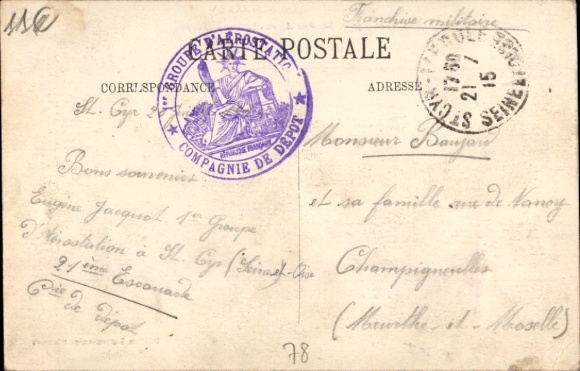 Franchise militaire
CARTE POSTALE
CORRESPONDANCE
ADRESSE
1er GROUPE D'AÉROSTATION
COMPAGNIE DE DÉPOT
RÉPUBLIQUE FRANÇAISE
ST CYR-L'ECOLE
SEINE
21 7 15
St. Cyr
Bons souvenirs
Eugène Jacquot 1er Groupe
d'Aérostation à St. Cyr (Seine-et-Oise
21ème Escouade
Cie de Dépot
Monsieur
et sa famille rue de Nancy
Champigneulles
(Meurthe-et-Moselle)
78